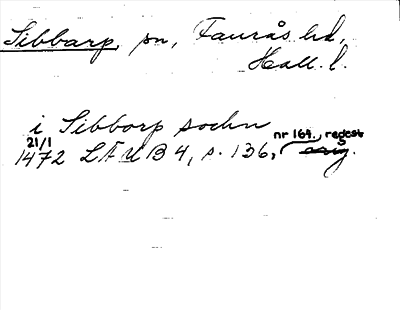 Sibbarp, sn, Faurås hd,
Hall. l.
i Sibborp sochn
21/1 nr 164, regest
1472 LÄUB 4, s. 136, orig.